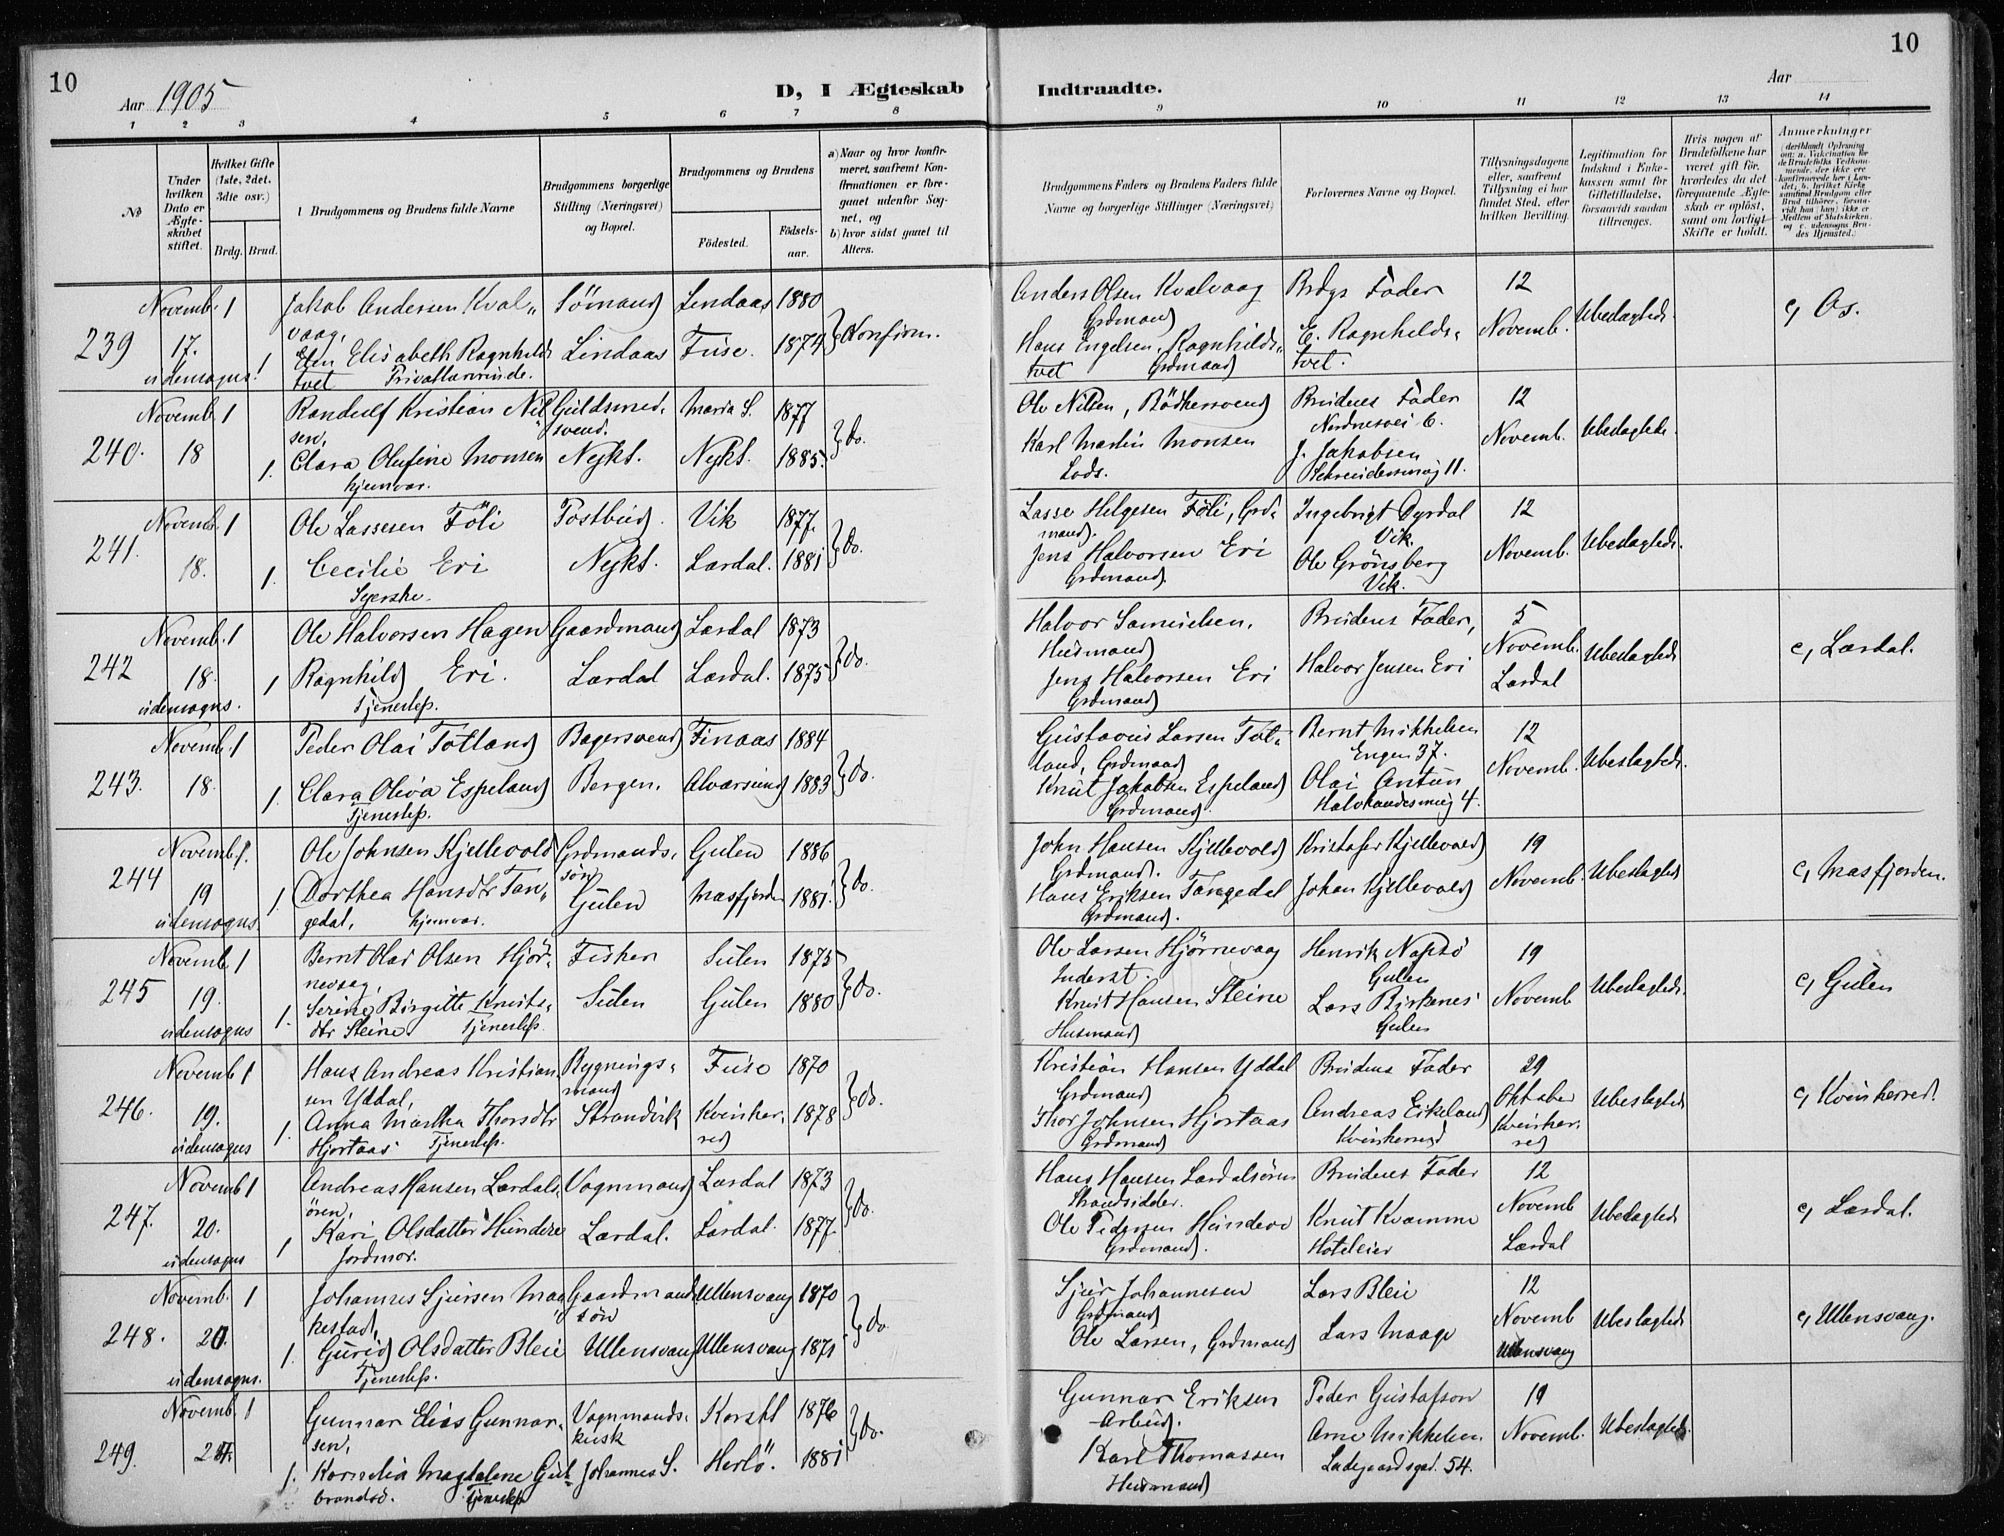 10
Aar 1905
D, I Ægteskab
Indtraadte.
Aar
10
1 2 3 4 5 6 7 8 9 10 11 12 13 14
No
Under hvilken Dato er Ægteskabet stiftet.
Hvilket Gifte (1ste, 2det, 3dte osv.)
Brdg. Brud.
Brudgommens og Brudens fulde Navne
Brudgommens borgerlige Stilling (Næringsvei) og Bopæl.
Brudgommens og Brudens
Fødested.
Fødselsaar.
a) Naar og hvor konfirmeret, saafremt Konfirmationen er foregaaet udenfor Sognet, og
b) hvor sidst gaaet til Alters.
Brudgommens Faders og Brudens Faders fulde Navne og borgerlige Stillinger (Næringsvei)
Forlovernes Navne og Bopæl.
Tillysningsdagene eller, saafremt Tillysning ei har fundet Sted, efter hvilken Bevilling.
Legitimation for Indskud i Enkekassen samt for Giftetilladelse, forsaavidt saadan tiltrænges.
Hvis nogen af Brudefolkene har været gift før, hvorledes da det foregaaende Ægteskab er opløst, samt om lovligt Skifte er holdt.
Anmerkninger
239 Novemb. 17. udensogns! 1 Jakob Andersen Kvalvaag, Sømand Lindaas 1880
1 Elen Elisabeth Ragnhildstvet Privatlærerinde. Lindaas Fuse. 1874 Konfirm.
Anders Olsen Kvalvaag Grdmand Brdgs Fader 12 Novemb. Ubeslagtede c, Os.
Hans Engelsen Ragnhildstvet Grdmand E. Ragnhildstvet.
240. Novemb. 18 1 Randulf Kristian Nilsen, Guldsmedsvend. Maria S. 1877
1. Clara Olufine Monsen hjemvær. Nykt. Nykt. 1885. do.
Ole Nilsen, Bødkersvend Brudens Fader Nordnesvei 6. 12 Novemb. Ubeslagtede
Karl Martin Monsen Lods. J. Jakobsen 11.
241. Novemb. 18. 1 Ole Lassesen Föli Postbud. Vik 1877.
1. Cecilie Eri Syerske. Nykt. Lærdal. 1881 do.
Lasse Helgesen Föli, Grdmand. Ingebrigt Dyrdal Vik. 12 Novemb. Ubeslagtede.
Jens Halvorsen Eri Grdmand Ole Grønsberg Vik.
242 Novemb. 18. udensogns. 1 Ole Halvorsen Hagen Gaardmand Lærdal 1873
1 Ragnhild Eri. Tjenestep. Lærdal Lærdal. 1875 do.
Halvor Samuelsen, Husmand Brudens Fader, 5 Novemb. Lærdal Ubeslagtede c, Lærdal.
Jens Halvorsen Eri Grdmand Halvor Jensen Eri
243. Novemb. 18. 1 Peder Olai Totland Bagersvend Finaas 1884
1. Clara Oliva Espeland Tjenestep. Bergen. Alversund 1883 do.
Gustavus Larsen Totland, Grdmand Bernt Mikkelsen Engen 37. 12 Novemb. Ubeslagtede.
Knut Jakobsen Espeland Grdmand. Olai Antun 4.
244 Novemb. 19 udensogns 1. Ole Johnsen Kjellevold Grdmandssøn Gulen 1886
1. Dorthea Hansdtr Tangedal, hjemvær. Gulen Masfjorden 1881. do.
John Hansen Kjellevold Grdmand. Kristofer Kjellevold 19 Novemb. Ubeslagtede c, Masfjorden.
Hans Eriksen Tangedal Grdmand. Johan Kjellevold
245 Novemb 19. udensogns 1 Bernt Olai Olsen Hjørnevaag, Fisker Sulen 1875
1. Serine Birgitte Knutsdtr Steine Tjenestep. Sulen Gulen 1880 do.
Ole Larsen Hjørnevaag Inderst. Henrik Napsø Gulen 19 Novemb Ubeslagtede. c, Gulen
Knut Hansen Steine Husmand Lars Birkenes Gulen
246. Novemb 19. udensogns 1 Hans Andreas Kristiansen Yddal, Bygningsmand Fuse 1870
1. Anna Martha Thorsdtr Hjortaas Tjenestep. Strandvik Kvinherred 1878 do.
Kristian Hansen Yddal Grdmand Brudens Fader 29 Oktober Kvinherred Ubeslagtede c, Kvinherred.
Thor Johnsen Hjortaas Grdmand Andreas Eikeland Kvinherred
247. Novemb 20. udensogns 1 Andreas Hansen Lærdalsøren, Vognmand Lærdal 1873
1 Kari Olsdatter Hundere Jordmor. Lærdal. Lærdal. 1877. do.
Hans Hansen Lærdalsøren Strandsidder. Brudens Fader 12 Novemb Lærdal Ubeslagtede c, Lærdal.
Ole Pedersen Hundere Grdmand. Knut Kvamme Hoteleier
248. Novemb. 20. udensogns. 1 Johannes Sjursen Maakestad, Gaardmandssøn Ullensvang 1870
1. Gurid Olsdatter Bleie Tjenestep. Ullensvang Ullensvang 1871 do.
Sjur Johannesen Grdmand Lars Bleie 12 Novemb Ullensvang Ubeslagtede c, Ullensvang.
Ole Larsen, Grdmand Lars Maage
249. Novemb. 1 Gunnar Elias Gunnarsen, Vognmandskusk Korskk 1876
1. Kornelia Magdalene Gulbrandsd. Tjenestep Johannes S. Herlø. 1881 do.
Gunnar Eriksen Arbeid. Peder Gustafson 19 Novemb. Ubeslagtede
Karl Thomassen Husmand Arne Mikkelsen Ladegaardsgad. 54.